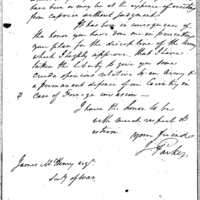 have been in may be at the expense of
from caprice without judgment.
It has been in consequence of
the honor you have done me in presenting
your plan for the discipline of the Army
which I highly approve, that I have
taken the liberty to give you some
crude opinions relative to an Army &
a permanent defence of our Country in
case of foreign invasion —
I have the honor to be
with much respect &
esteem
Your friend
J Parker
James McHenry esqr
Secty of war